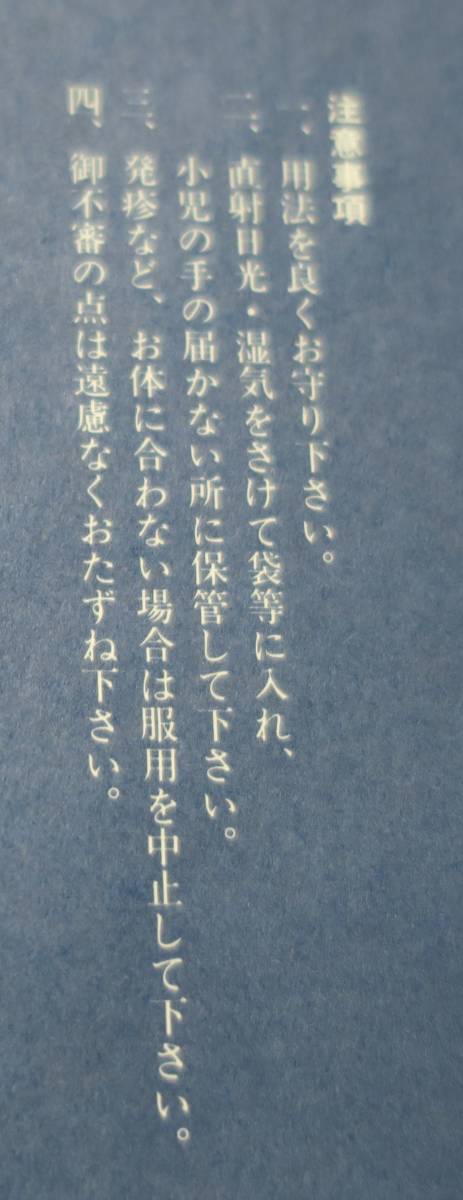 注意事項
一、用法を良くお守り下さい。
二、直射日光・湿気をさけて袋等に入れ、
小児の手の届かない所に保管して下さい。
三、発疹など、お体に合わない場合は服用を中止して下さい。
四、御不審の点は遠慮なくおたずね下さい。